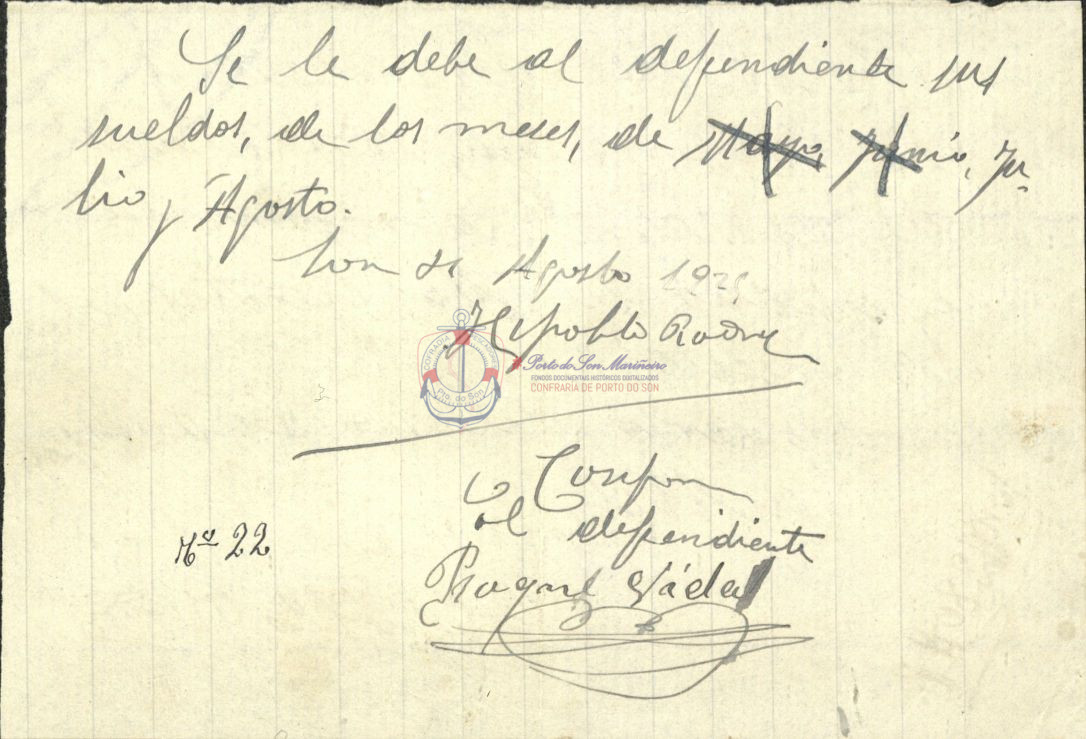 Se le debe al dependiente sus
sueldos, de los meses, de Mayo, Junio, Ju-
lio y Agosto.
Son de Agosto 192
Hipolito Rodrz
COFRADIA
Pto. do Son
Porto do Son Mariñeiro
FONDOS DOCUMENTAIS HISTÓRICOS DIXITALIZADOS
CONFRARÍA DE PORTO DO SON
el dependiente
Nº 22
Vidal